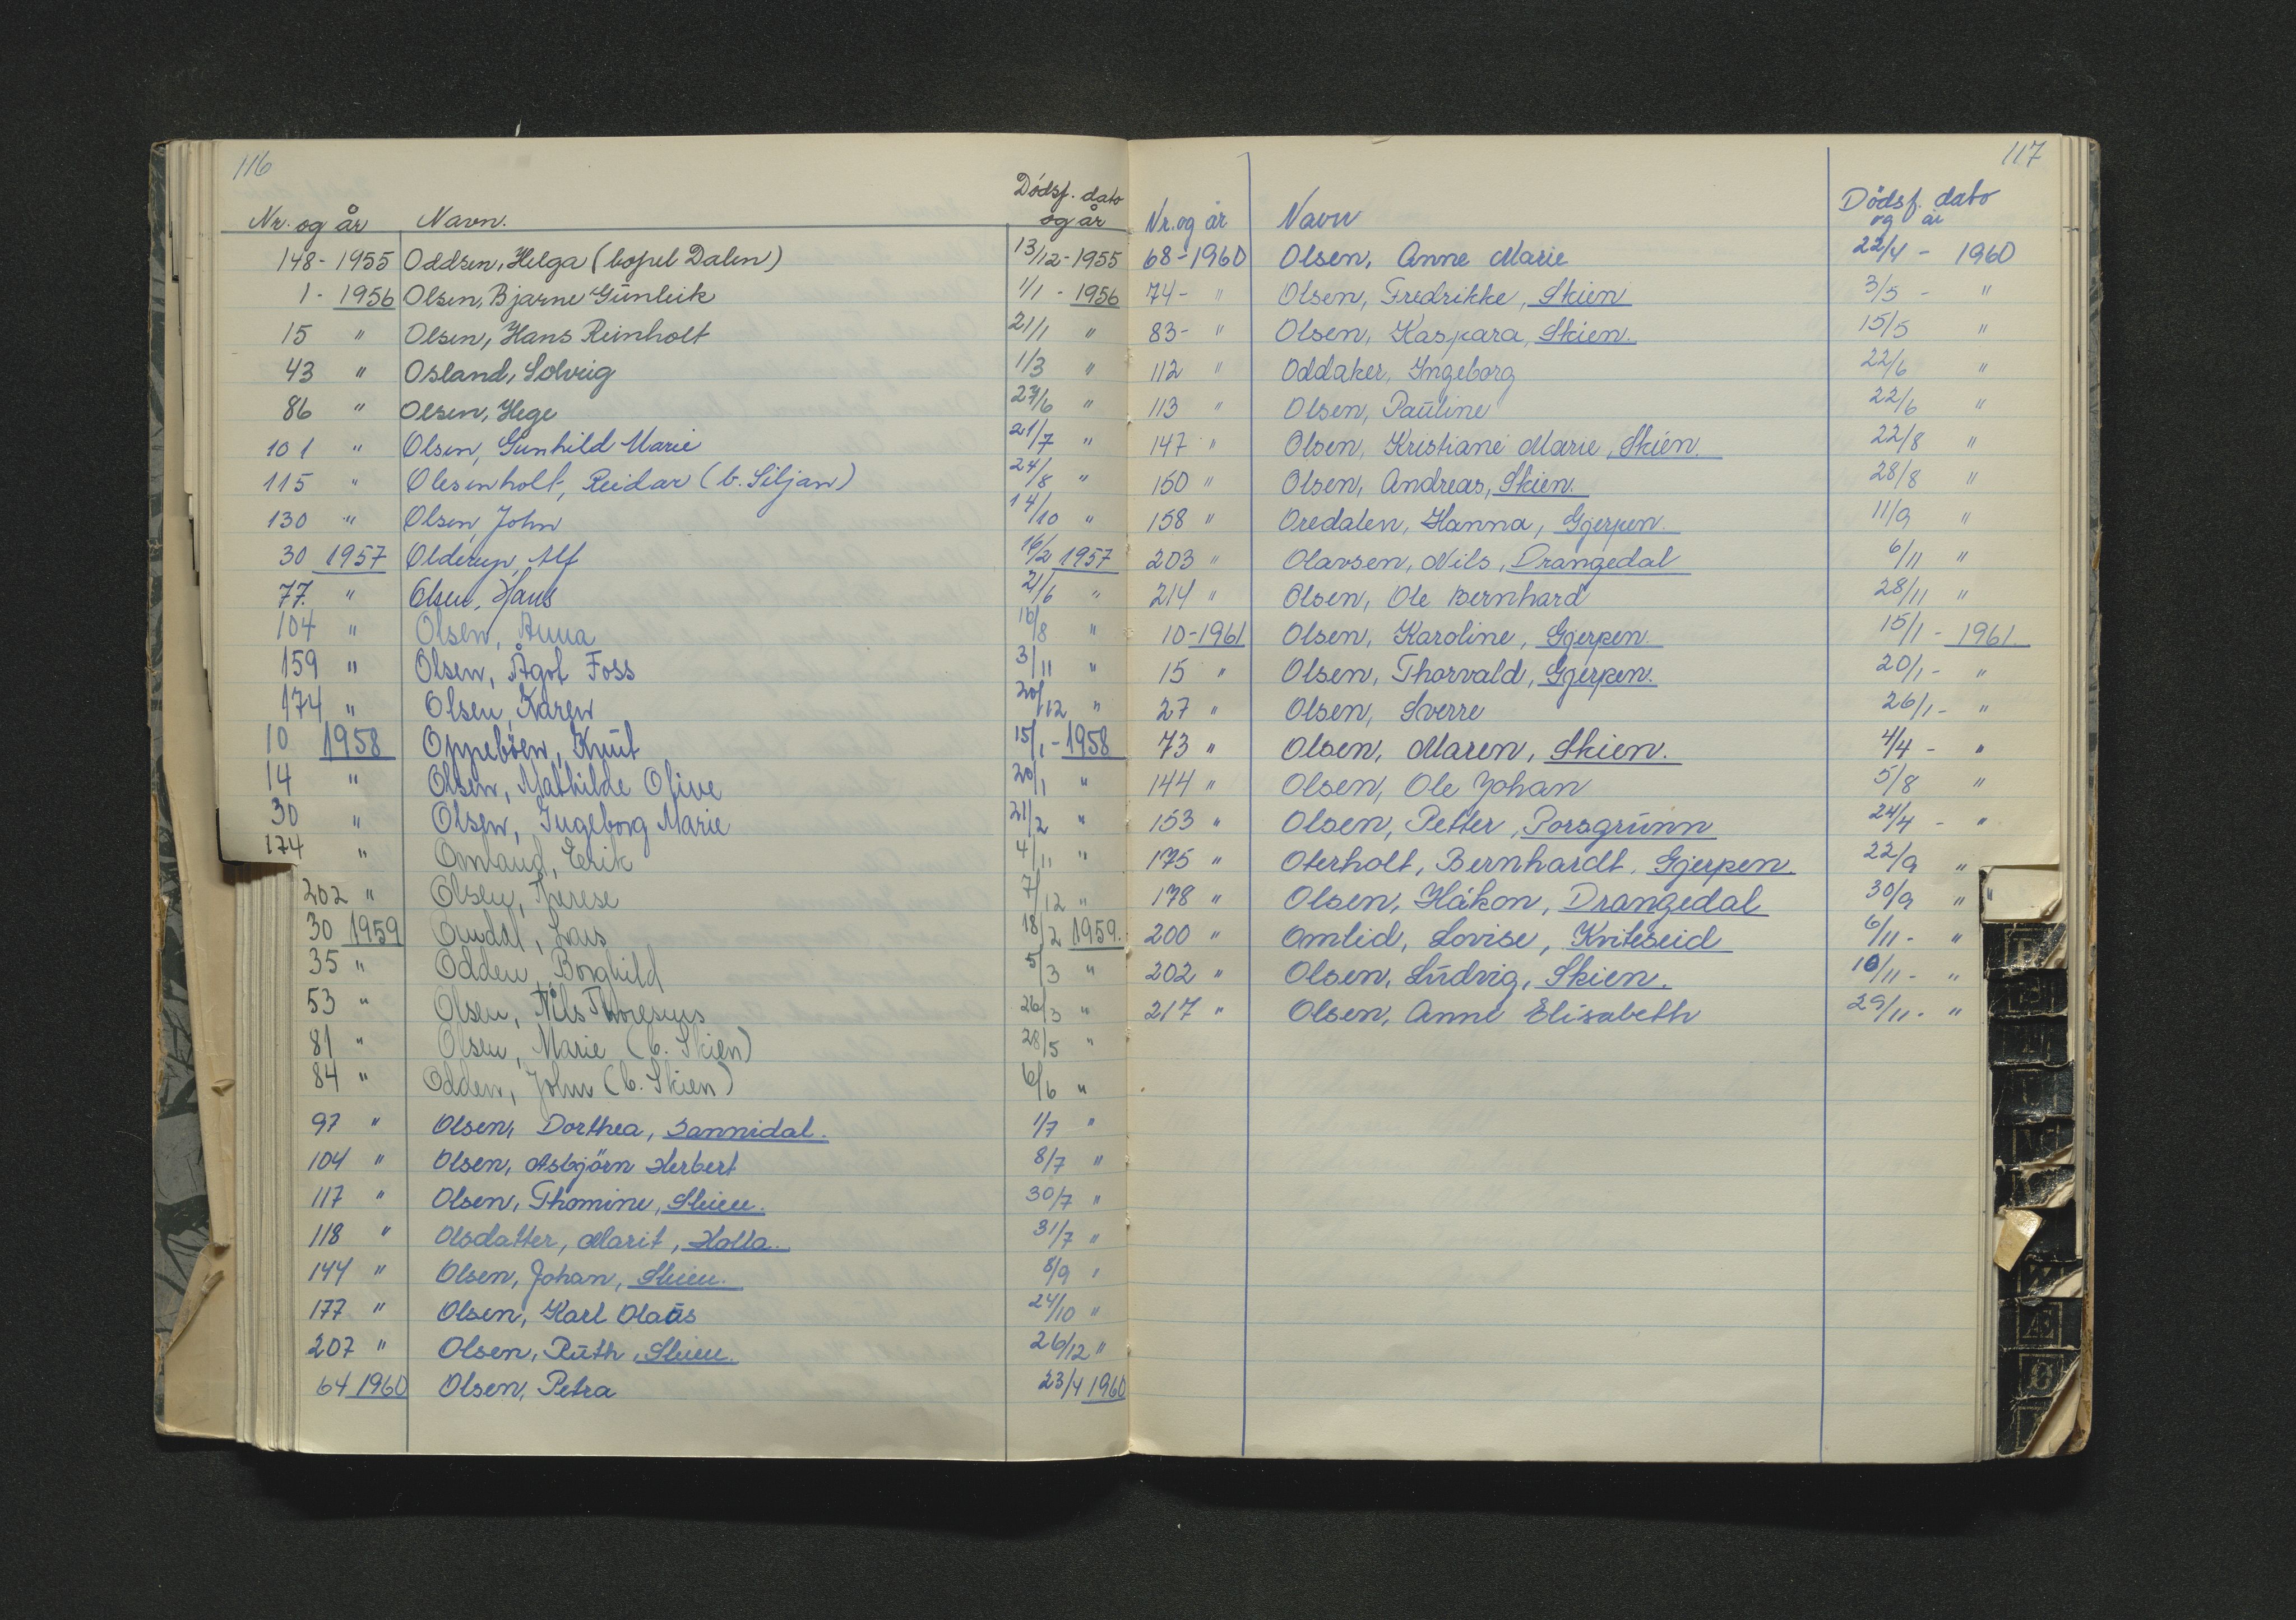 116
Nr. og år Navn. Dödsf. dato og år
148 - 1955 Oddsen, Helga (bopel Dalen) 13/12 - 1955
1 - 1956 Olsen, Bjarne Gunleik 1/1 - 1956
15 " Olsen, Hans Reinholt 21/1 "
43 " Osland, Solveig 1/3 "
86 " Olsen, Hege 27/6 "
101 " Olsen, Gunhild Marie 21/7 "
115 " Olesenholt, Reidar (b. Siljan) 24/8 "
130 " Olsen, John 14/10 "
30 1957 Olderup, Alf 16/2 1957
77. " Olsen, Hans 21/6 "
104 " Olsen, Anna 16/8 "
159 " Olsen, Ågot Foss 3/11 "
174 " Olsen, Karen 20/12 "
10 1958 Oppeböen, Knut 15/1 - 1958
14 " Olsen, Mathilde Olive 20/1 "
30 " Olsen, Ingeborg Marie 21/2 "
174 " Omland, Erik 4/11 "
202 " Olsen, Therese 7/12 "
30 1959 Omdal, Lars 18/2 1959.
35 " Odden, Borghild 5/3 "
53 " Olsen, Nils Thoresius 26/3 "
81 " Olsen, Marie (b. Skien) 28/5 "
84 " Odden, John (b. Skien) 6/6 "
97 " Olsen, Dorthea, Sannidal. 1/7 "
104 " Olsen, Asbjörn Herbert 8/7 "
117 " Olsen, Thomine, Skien. 30/7 "
118 " Olsdatter, Marit, Holla. 31/7 "
144 " Olsen, Johan, Skien. 8/9 "
177 " Olsen, Karl Olaus 24/10 "
207 " Olsen, Ruth, Skien. 26/12 "
64 1960 Olsen, Petra 23/4 1960
117
Nr. og år Navn Dödsf. dato og år
68 - 1960 Olsen, Anne Marie 22/4 - 1960
74 - " Olsen, Fredrikke, Skien 3/5 - "
83 - " Olsen, Kaspara, Skien. 15/5 "
112 " Oddaker, Ingeborg 22/6 "
113 " Olsen, Pauline 22/6 "
147 " Olsen, Kristiane Marie, Skien. 22/8 "
150 " Olsen, Andreas, Skien. 28/8 "
158 " Oredalen, Hanna, Gjerpen. 11/9 "
203 " Olavsen, Nils, Drangedal 6/11 "
214 " Olsen, Ole Bernhard 28/11 "
10 - 1961 Olsen, Karoline, Gjerpen. 15/1 - 1961.
15 " Olsen, Thorvald, Gjerpen. 20/1 - "
27 " Olsen, Sverre 26/1 - "
73 " Olsen, Maren, Skien. 4/4 - "
144 " Olsen, Ole Johan 5/8 "
153 " Olsen, Petter, Porsgrunn 24/4 - "
175 " Oterholt, Bernhardt, Gjerpen. 22/9 "
178 " Olsen, Håkon, Drangedal 30/9 " "
200 " Omlid, Lovise, Kviteseid 6/11 - "
202 " Olsen, Ludvig, Skien. 10/11 - "
217 " Olsen, Anne Elisabeth 29/11 - "
U
Æ
Ø